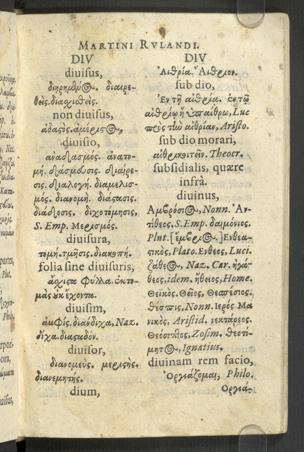 MARTINI RVLANDI.
DIV
diuisus,
διῃρημένος, διαιρε-
θεὶς. διασχισθεὶς.
non diuisus,
ἀδαὴς, ἀμέρισος,
diuisio,
ἀναδασμὸς. ἀνατο-
μὴ. διάσασις. διαίρε-
σις. διαλογὴ. διαμελισ-
μὸς. διανομὴ. διάστασις.
διάδοσις. διχοτόμησις,
S. Emp. Μερισμὸς.
diuisura,
τομή. τμῆσις, διακοπή.
folia sine diuisuris,
ἄσχιστα φύλλα. ἐκτο-
μὰς οὐκ ἔχοντα.
diuisim,
ἀμφὶς. διάνδιχα, Naz.
δίχα. διασταδόν.
diuisor,
διανομεὺς. μερισὴς.
διανεμητὴς.
dium,
DIV
Αἰθρία. Αἴθριον.
sub dio,
Ἐν τῇ αἰθρίᾳ. ἐν τῷ
αἰθρίῳ ἢ ὑπαίθρῳ, Luc
πρὸς τὴν αἰθρίαν, Aristo.
sub dio morari,
αἰθριοκοιτεῖν. Theocr.
subsidialis, quære
infrà.
diuinus,
Ἀμβρόσιος, Nonn. Ἀν-
τίθεος. S. Emp. δαιμόνιος.
Plut. Ἐνθεα-
στικὸς, Plato. Ἔνθεος, Luci.
ζάθεος, Naz. Car. ἠγά-
θεος, idem. ἤθειος, Home.
Θεϊκὸς. Θεῖος, Θεσπέσιος.
θέσπις, Nonn. Ἱερὸς Μα
νικὸς, Aristid. νεκτάρεος.
Θεόπτικὸς, Zosim. θεοτί-
μητος, Ignatius.
diuinam rem facio,
Ὀργιάζομαι, Philo.
Ὀργιά-